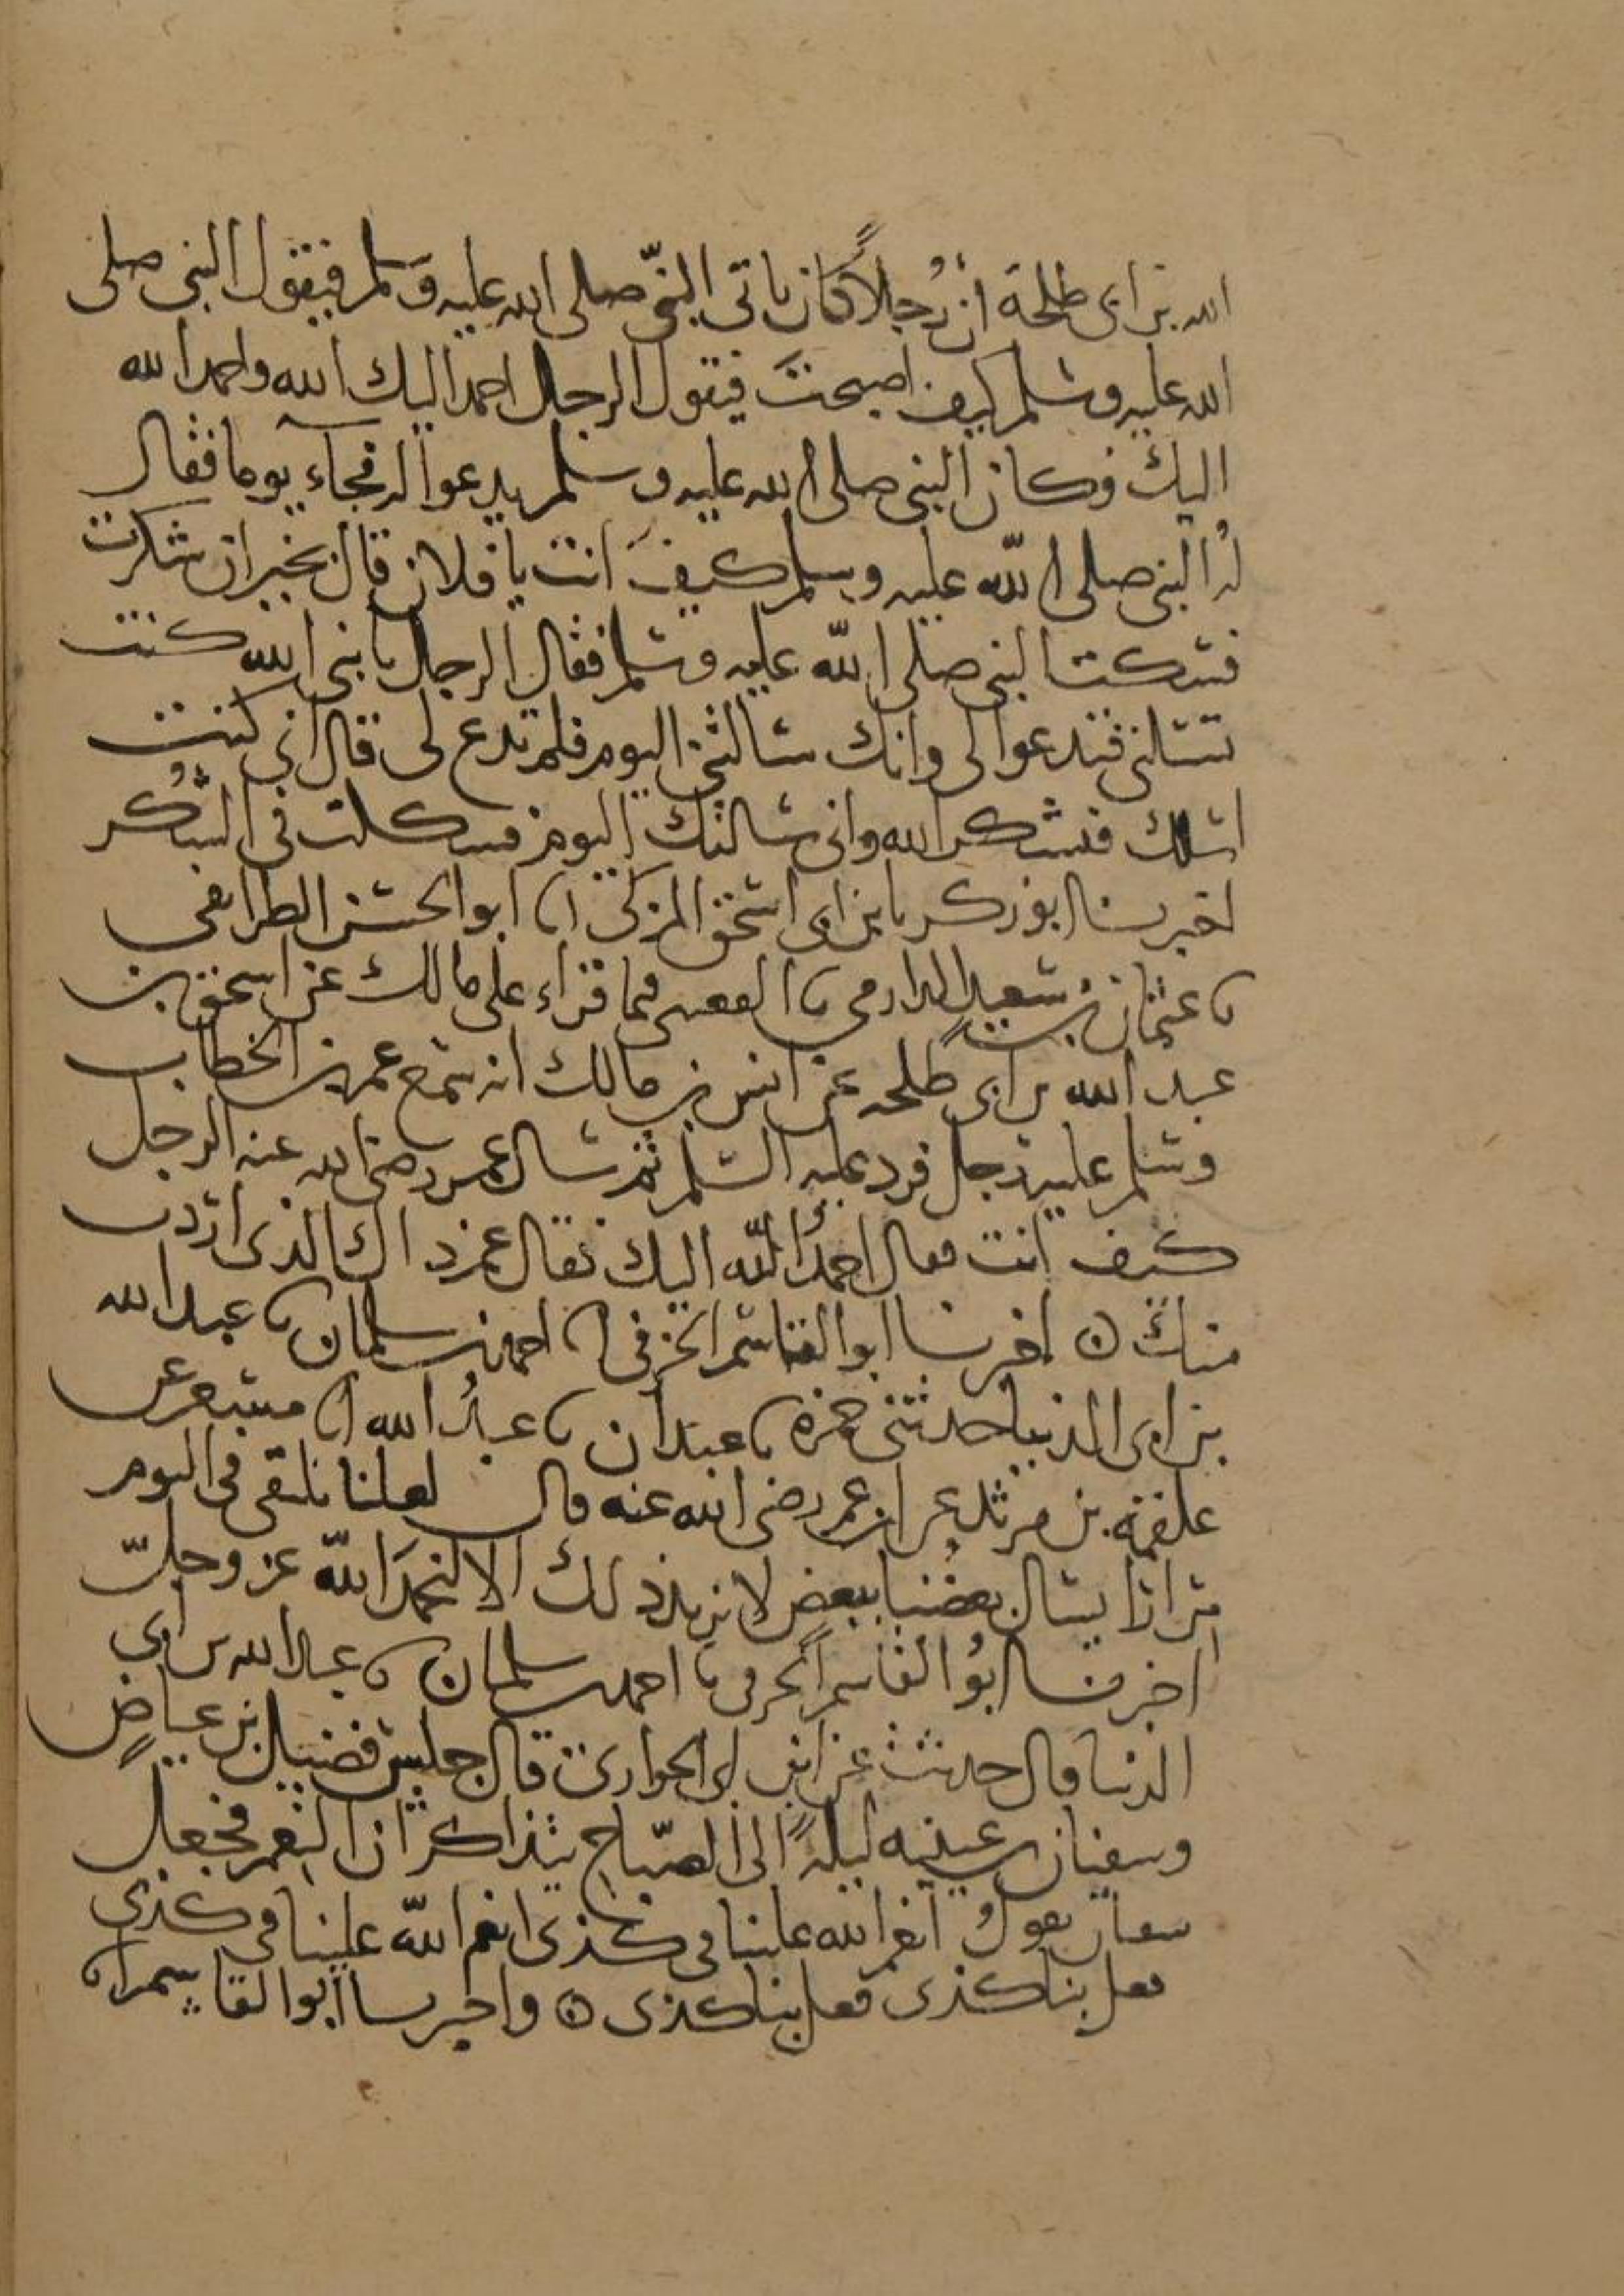 الله بن ابى طلحة ان رجلاً كان ياتى النبىّ صلى الله عليه وسلم فيقول النبى صلى
الله عليه وسلم كيف اصبحتَ فيقول الرجل احمد اليك الله واحمد الله
اليك فكان النبى صلى الله عليه وسلم يدعوا له فجاء يوما فقال
لهُ النبى صلى اللّه عليه وسلم كيفَ انت يا فلان قال بخير ان شكرت
فسكت النبى صلى اللّه عليه وسلم فقال الرجل يا نبى الله كنت
تسئلنى فتدعوا لى وانك سالتنى اليوم فلم تدع لى قال انى كنت
اسئلك فتشكر الله وانى سالتك اليوم فسككت فى الشُكر
اخبرنا ابو زكريا بن ابى اسحق المزكى انا ابو الحسن الطرايفى
نا عثمان بن سعيد الدارمى نا القعنبى فيما قراء على مالك عن اسحق بن
عبد الله بن ابى طلحه عن انس بن مالك انه سمع عمر بن الخطاب
وسلم عليه رجل فرد عليه السلم ثم سال عمر رضى الله عنه الرجل
كيف انت فقال احمدُ اللّه اليك فقال عمر ذاك الذى اردت
منك ٥ اخبرنا ابو القاسم الحرفى نا احمد بن سلمان نا عبد الله
بن ابى الدنيا حدثنى حمزه نا عبدان نا عبدُ الله انا مسعر عن
علقمه بن مرثد عن ابن عمر رضى الله عنه قال لعلنا نلتقى فى اليوم
مرارا يسال بعضُنا ببعض لا نريد ذلك الا لنحمدَ اللّه عز وجلّ
اخبرنا ابوُ القاسم الحرفى نا احمد بن سلمان نا عبد الله بن ابى
الدنيا قال حدثت عن ابن ابى الحوارى قال جلس فضيل بن عياضٍ
وسفيان بن عيينه ليلةً الى الصّباح يتذاكران النعم فجعل
سفيان يقولُ انعم الله علينا فى كذى انعم اللّه علينا فى كذى
فعل بنا كذى فعل بنا كذى ٥ واخبرنا ابو القاسم نا